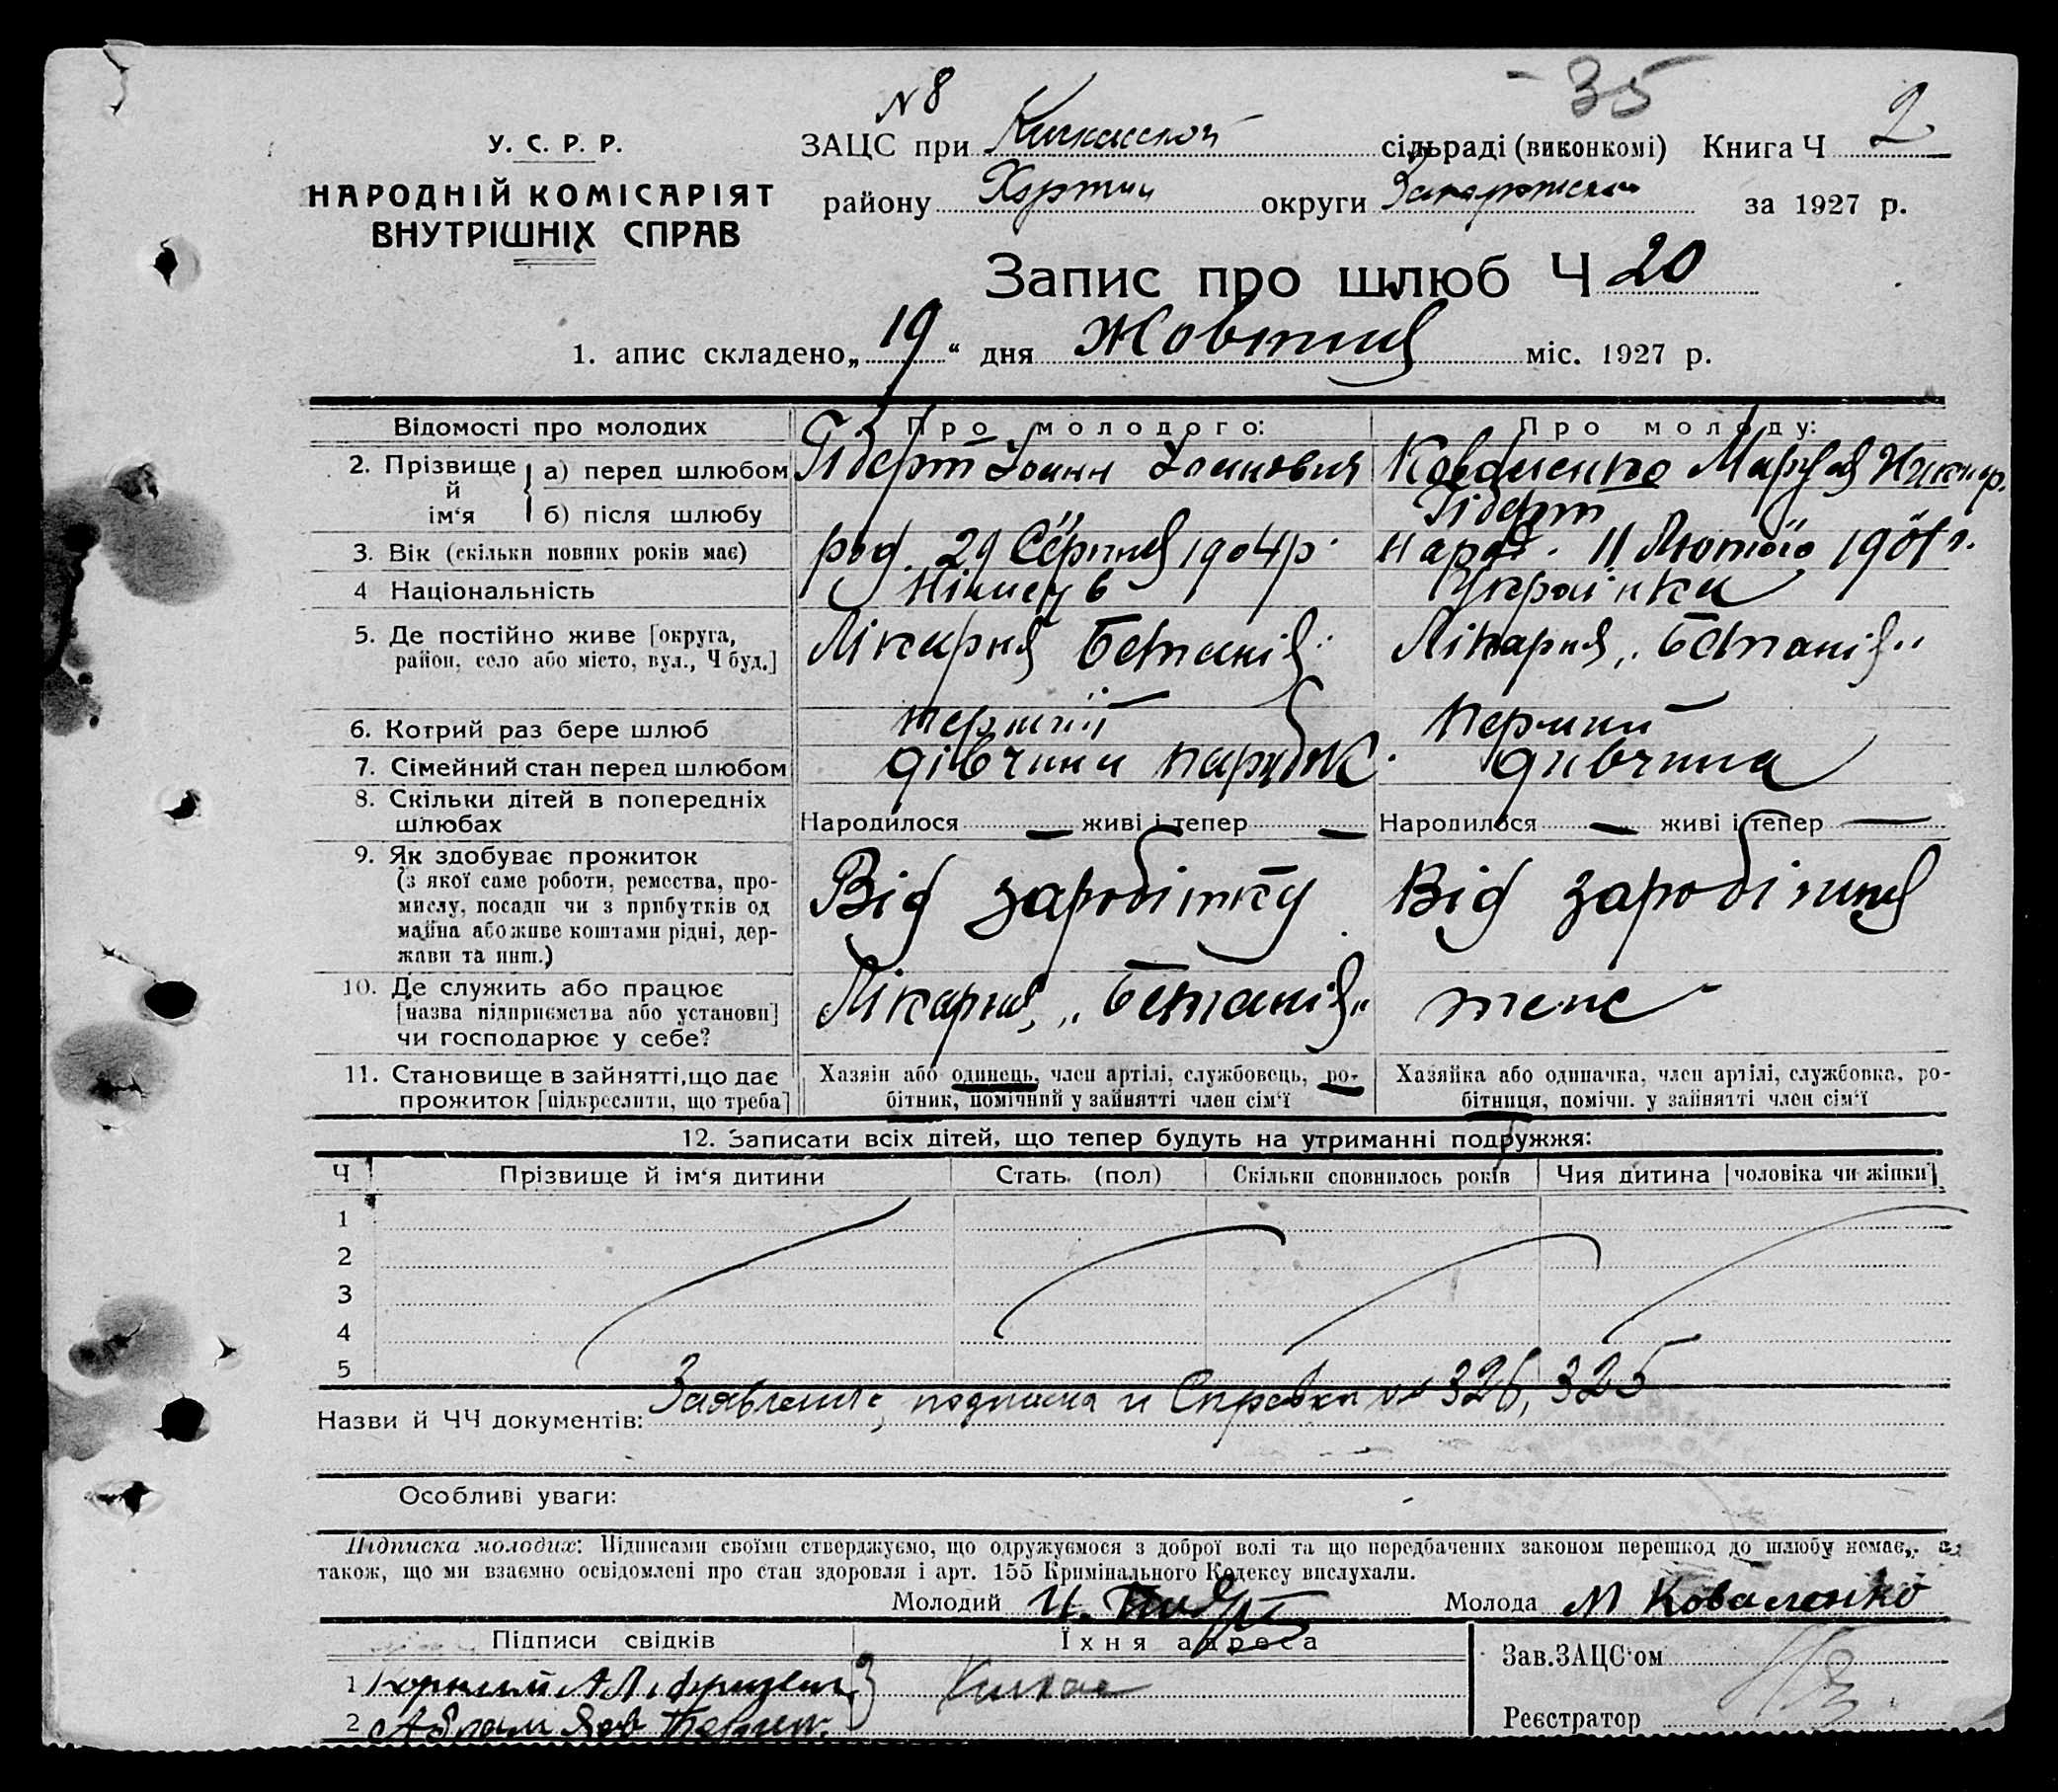 № 8
- 35
У. С. Р. Р.
НАРОДНІЙ КОМІСАРІЯТ
ВНУТРІШНІХ СПРАВ
ЗАЦС при Кичкасской сільраді (виконкомі) Книга Ч 2
району Хортиц округи Запорожской за 1927 р.
Запис про шлюб Ч 20
1. апис складено „ 19 “ дня Жовтня міс. 1927 р.
Відомості про молодих
Про молодого:
Про молоду:
2. Прізвище й ім‘я
а) перед шлюбом
Гіберт Іоанн Іоанович
Коваленко Маруся Никифор.
б) після шлюбу
Гіберт
3. Вік (скільки повних років має)
род. 29 Серпня 1904 р.
народ. 11 Лютого 1901 г.
4 Національність
Німець
Українка
5. Де постійно живе [округа,
район, село або місто, вул., Ч буд.]
Лікарня Бетанія
Лікарня „Бетанія“
6. Котрий раз бере шлюб
перший
перший
7. Сімейний стан перед шлюбом
дівчина парубок.
дивчина
8. Скільки дітей в попередніх
шлюбах
Народилося — живі і тепер —
Народилося — живі і тепер —
9. Як здобуває прожиток
(з якої саме роботи, ремества, про-
мислу, посади чи з прибутків од
майна або живе коштами рідні, дер-
жави та инш.)
Від заробітку
Від заробітку
10. Де служить або працює
[назва підприємства або установи]
чи господарює у себе?
Лікарня, „Бетанія“
теж
11. Становище в зайнятті, що дає
прожиток [підкреслити, що треба]
Хазяїн або одинець, член артілі, службовець, ро-
бітник, помічний у зайнятті член сім‘ї
Хазяйка або одиначка, член артілі, службовка, ро-
бітниця, помічн. у зайнятті член сім‘ї
12. Записати всіх дітей, що тепер будуть на утриманні подружжя:
Ч
Прізвище й ім‘я дитини
Стать (пол)
Скільки сповнилось років
Чия дитина [чоловіка чи жінки]
1
2
3
4
5
Назви й ЧЧ документів: Заявление, подписка и Справка № 326, 325
Особливі уваги:
Підписка молодих: Підписами своїми стверджуємо, що одружуємося з доброї волі та що передбачених законом перешкод до шлюбу немає, а
також, що ми взаємно освідомлені про стан здоровля і арт. 155 Кримінального Кодексу вислухали.
Молодий И.
Молода М Коваленко
Підписи свідків
Їхня адреса
Зав. ЗАЦС‘ом
1 Корнелий
Кичкас
2 Абрам Яков
Реєстратор